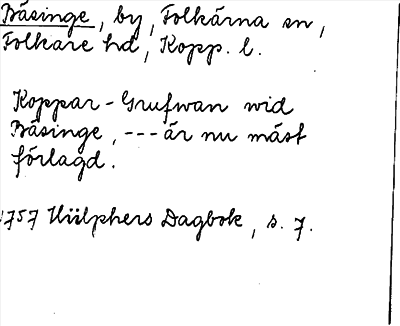 Båsinge, by, Folkärna sn,
Folkare hd, Kopp. l.
Koppar-Grufwan wid
Båsinge, --- är nu mäst
förlagd.
1757 Hülphers Dagbok, s. 7.